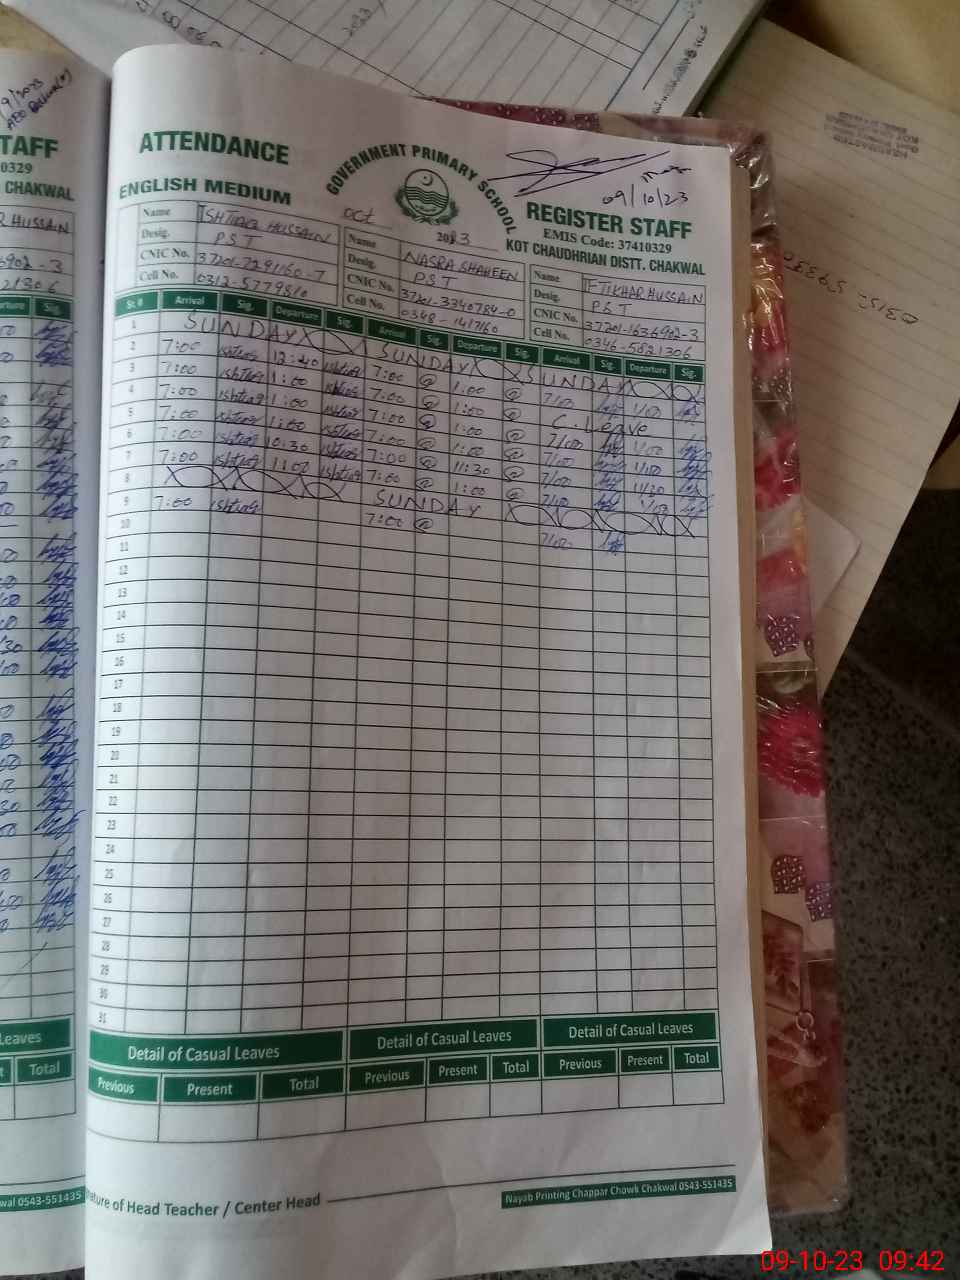 TAFF
0329
CHAKWAL
R HUSSAIN
ATTENDANCE
ENGLISH MEDIUM
GOVERNMENT PRIMARY SCHOOL
09/10/23
REGISTER STAFF
EMIS Code: 37410329
KOT CHAUDHRIAN DISTT. CHAKWAL
Oct 2023
Name ISHTIAQ HUSSAIN
Desig. PST
CNIC No. 37201-7291160-7
Cell No. 0312-5779810
Name NASRA SHAHEEN
Desig. PST
CNIC No. 37201-3340784-0
Cell No. 0348-1417160
Name IFTIKHAR HUSSAIN
Desig. PST
CNIC No. 37201-1636902-3
Cell No. 0346-5821306
Sr. # Arrival Sig. Departure Sig. Arrival Sig. Departure Sig. Arrival Sig. Departure Sig.
1 SUNDAY SUNDAY SUNDAY
2 7:00 ishtiaq 12:40 ishtiaq 7:00 1:00 7/00 1/00
3 7:00 ishtiaq 1:00 ishtiaq 7:00 1:00 C. Leave
4 7:00 ishtiaq 1:00 ishtiaq 7:00 1:00 7/00 1/00
5 7:00 ishtiaq 1:00 ishtiaq 7:00 1:00 7/00 1/00
6 7:00 ishtiaq 10:30 ishtiaq 7:00 11:30 7/00 11/30
7 7:00 ishtiaq 1:00 ishtiaq 7:00 1:00 7/00 1/00
8 SUNDAY
9 7:00 ishtiaq 7:00 7/00
10
11
12
13
14
15
16
17
18
19
20
21
22
23
24
25
26
27
28
29
30
31
Leaves
Total
Detail of Casual Leaves Detail of Casual Leaves Detail of Casual Leaves
Previous Present Total Previous Present Total Previous Present Total
nature of Head Teacher / Center Head
wal 0543-551435
Nayab Printing Chappar Chowk Chakwal 0543-551435
09-10-23 09:42